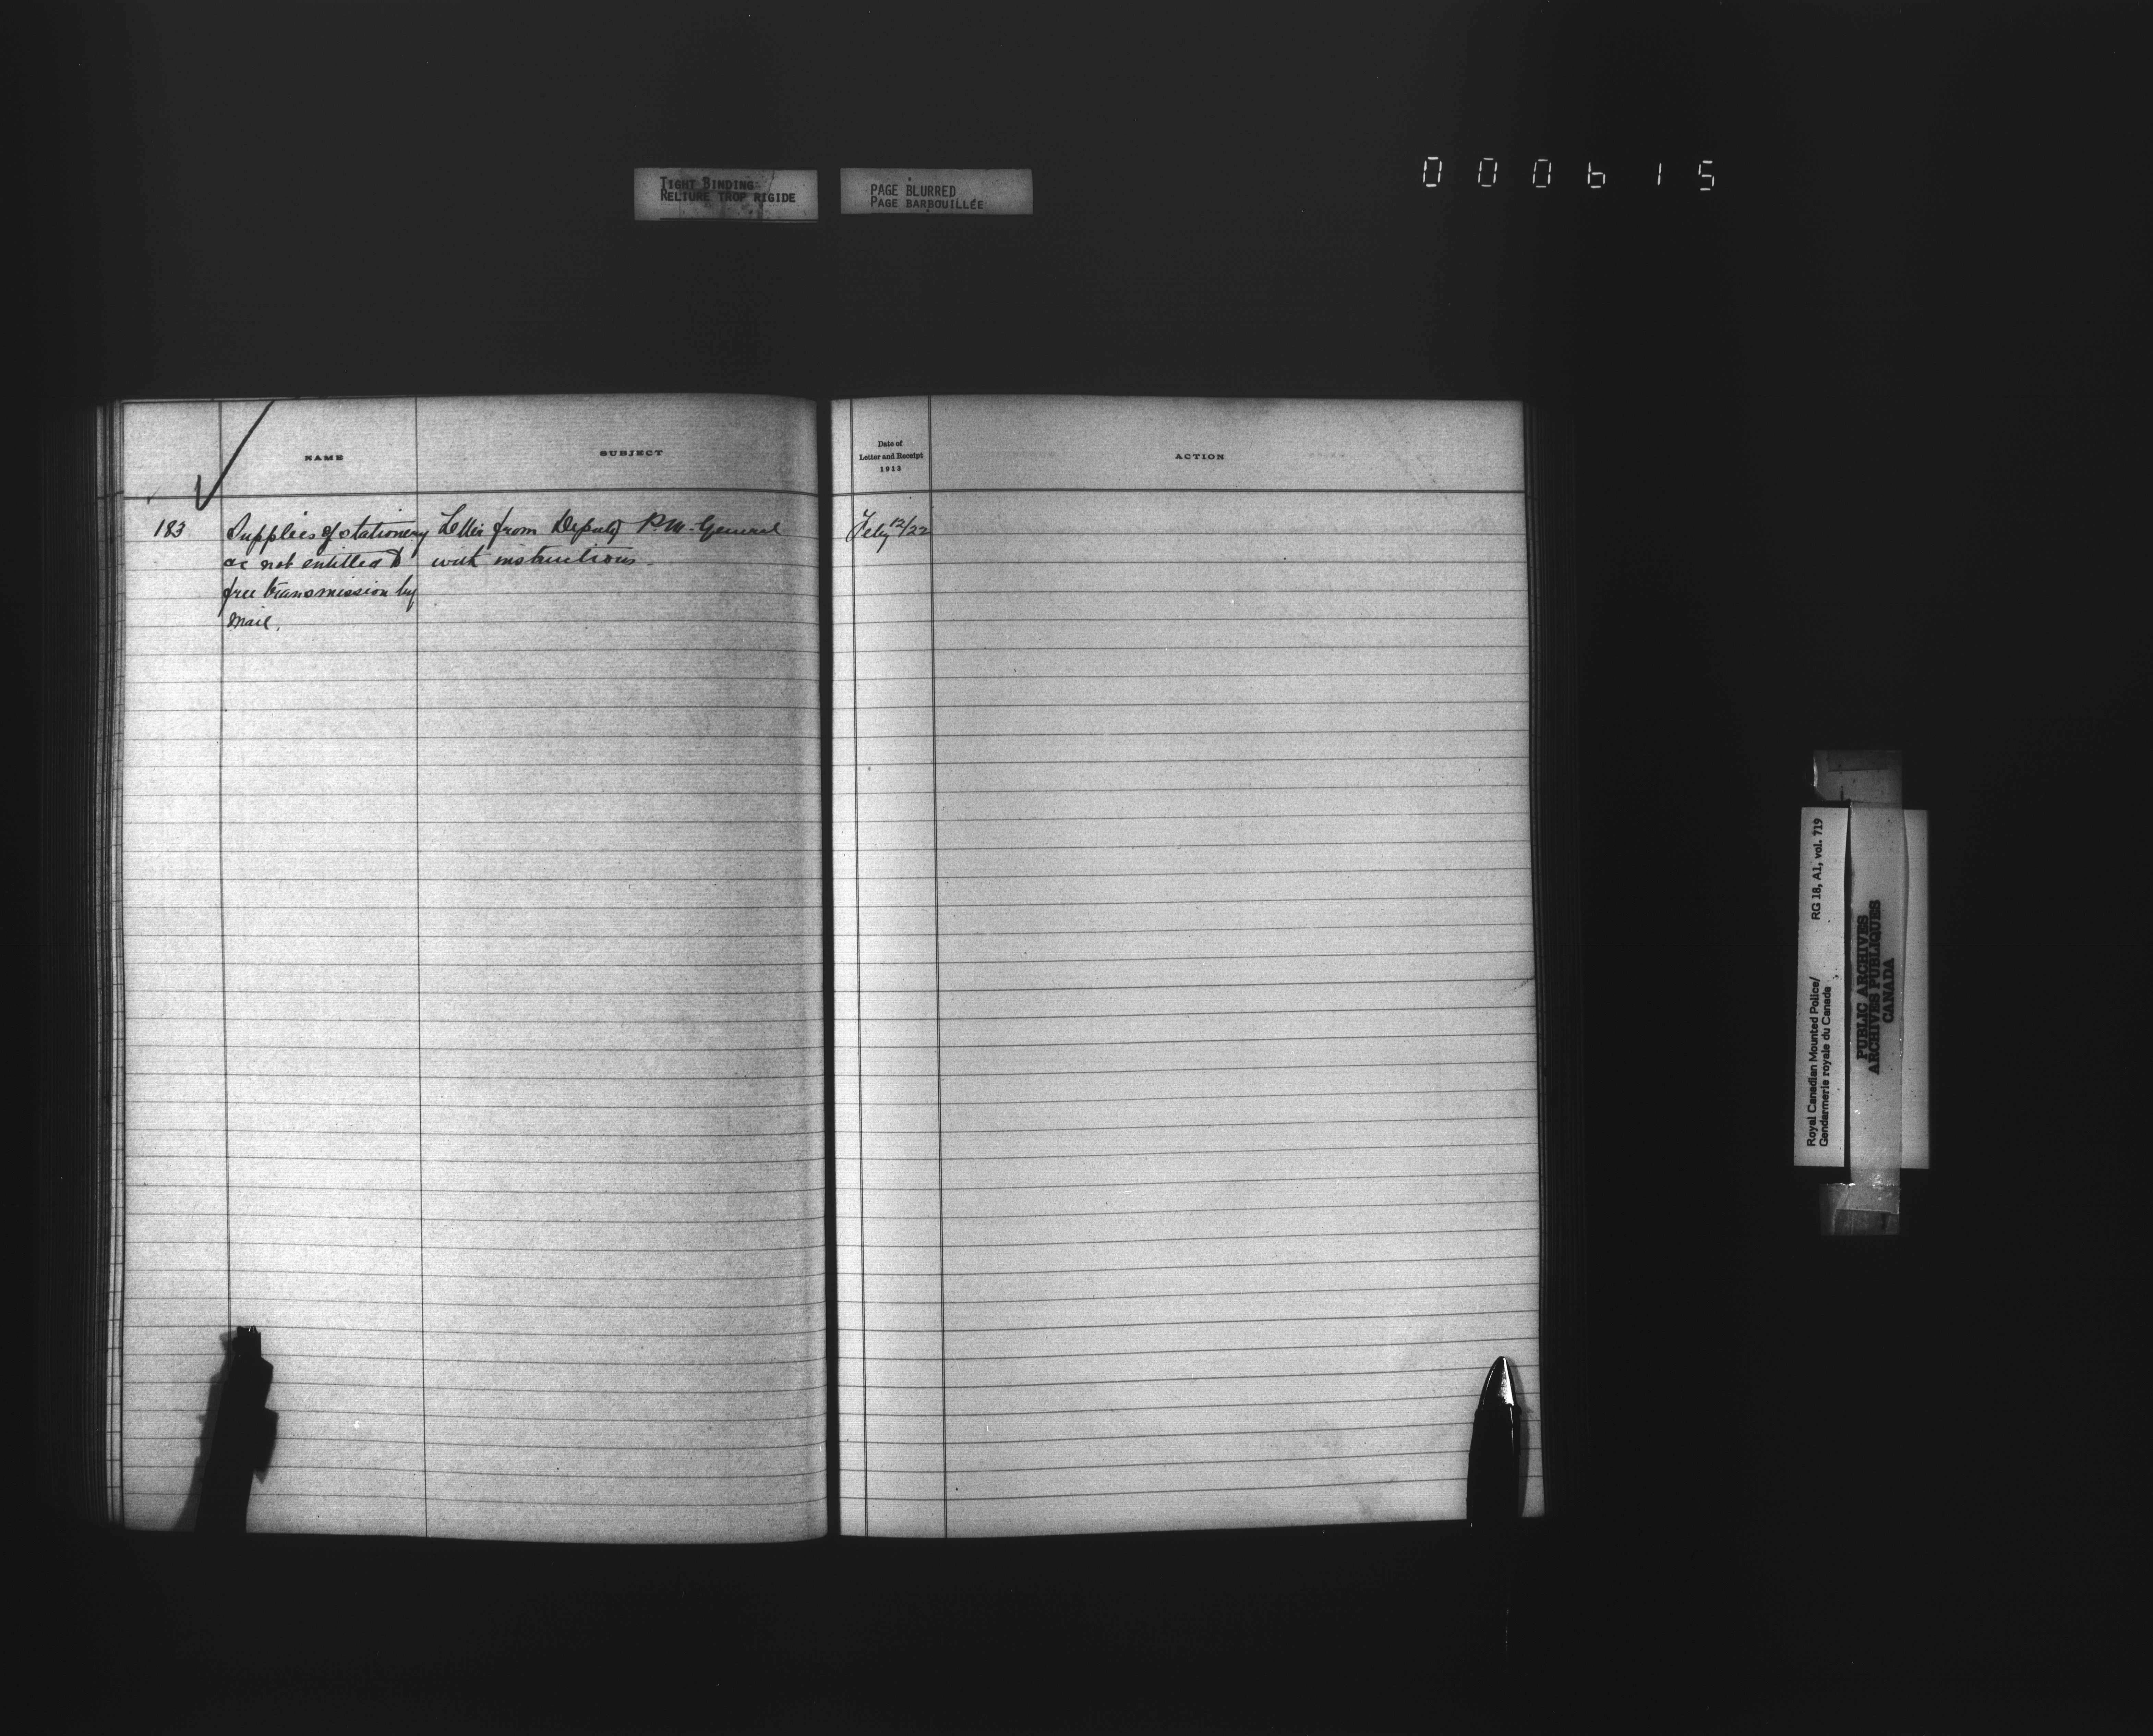 TIGHT BINDING
RELIURE TROP RIGIDE
PAGE BLURRED
PAGE BARBOUILLÉE
000615
NAME
SUBJECT
Date of
Letter and Receipt
1913
ACTION
183
Supplies of stationery
as not entitled to
free transmission by
mail.
Letter from Deputy P.M. General
with instructions.
Feby 12/22
Royal Canadian Mounted Police/
Gendarmerie royale du Canada
RG 18, A1, vol. 719
PUBLIC ARCHIVES
ARCHIVES PUBLIQUES
CANADA